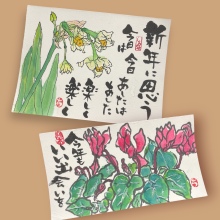 新年に思う
今日は今日
あしたは
あした
楽しく
楽しく
今年も
いい出会いを